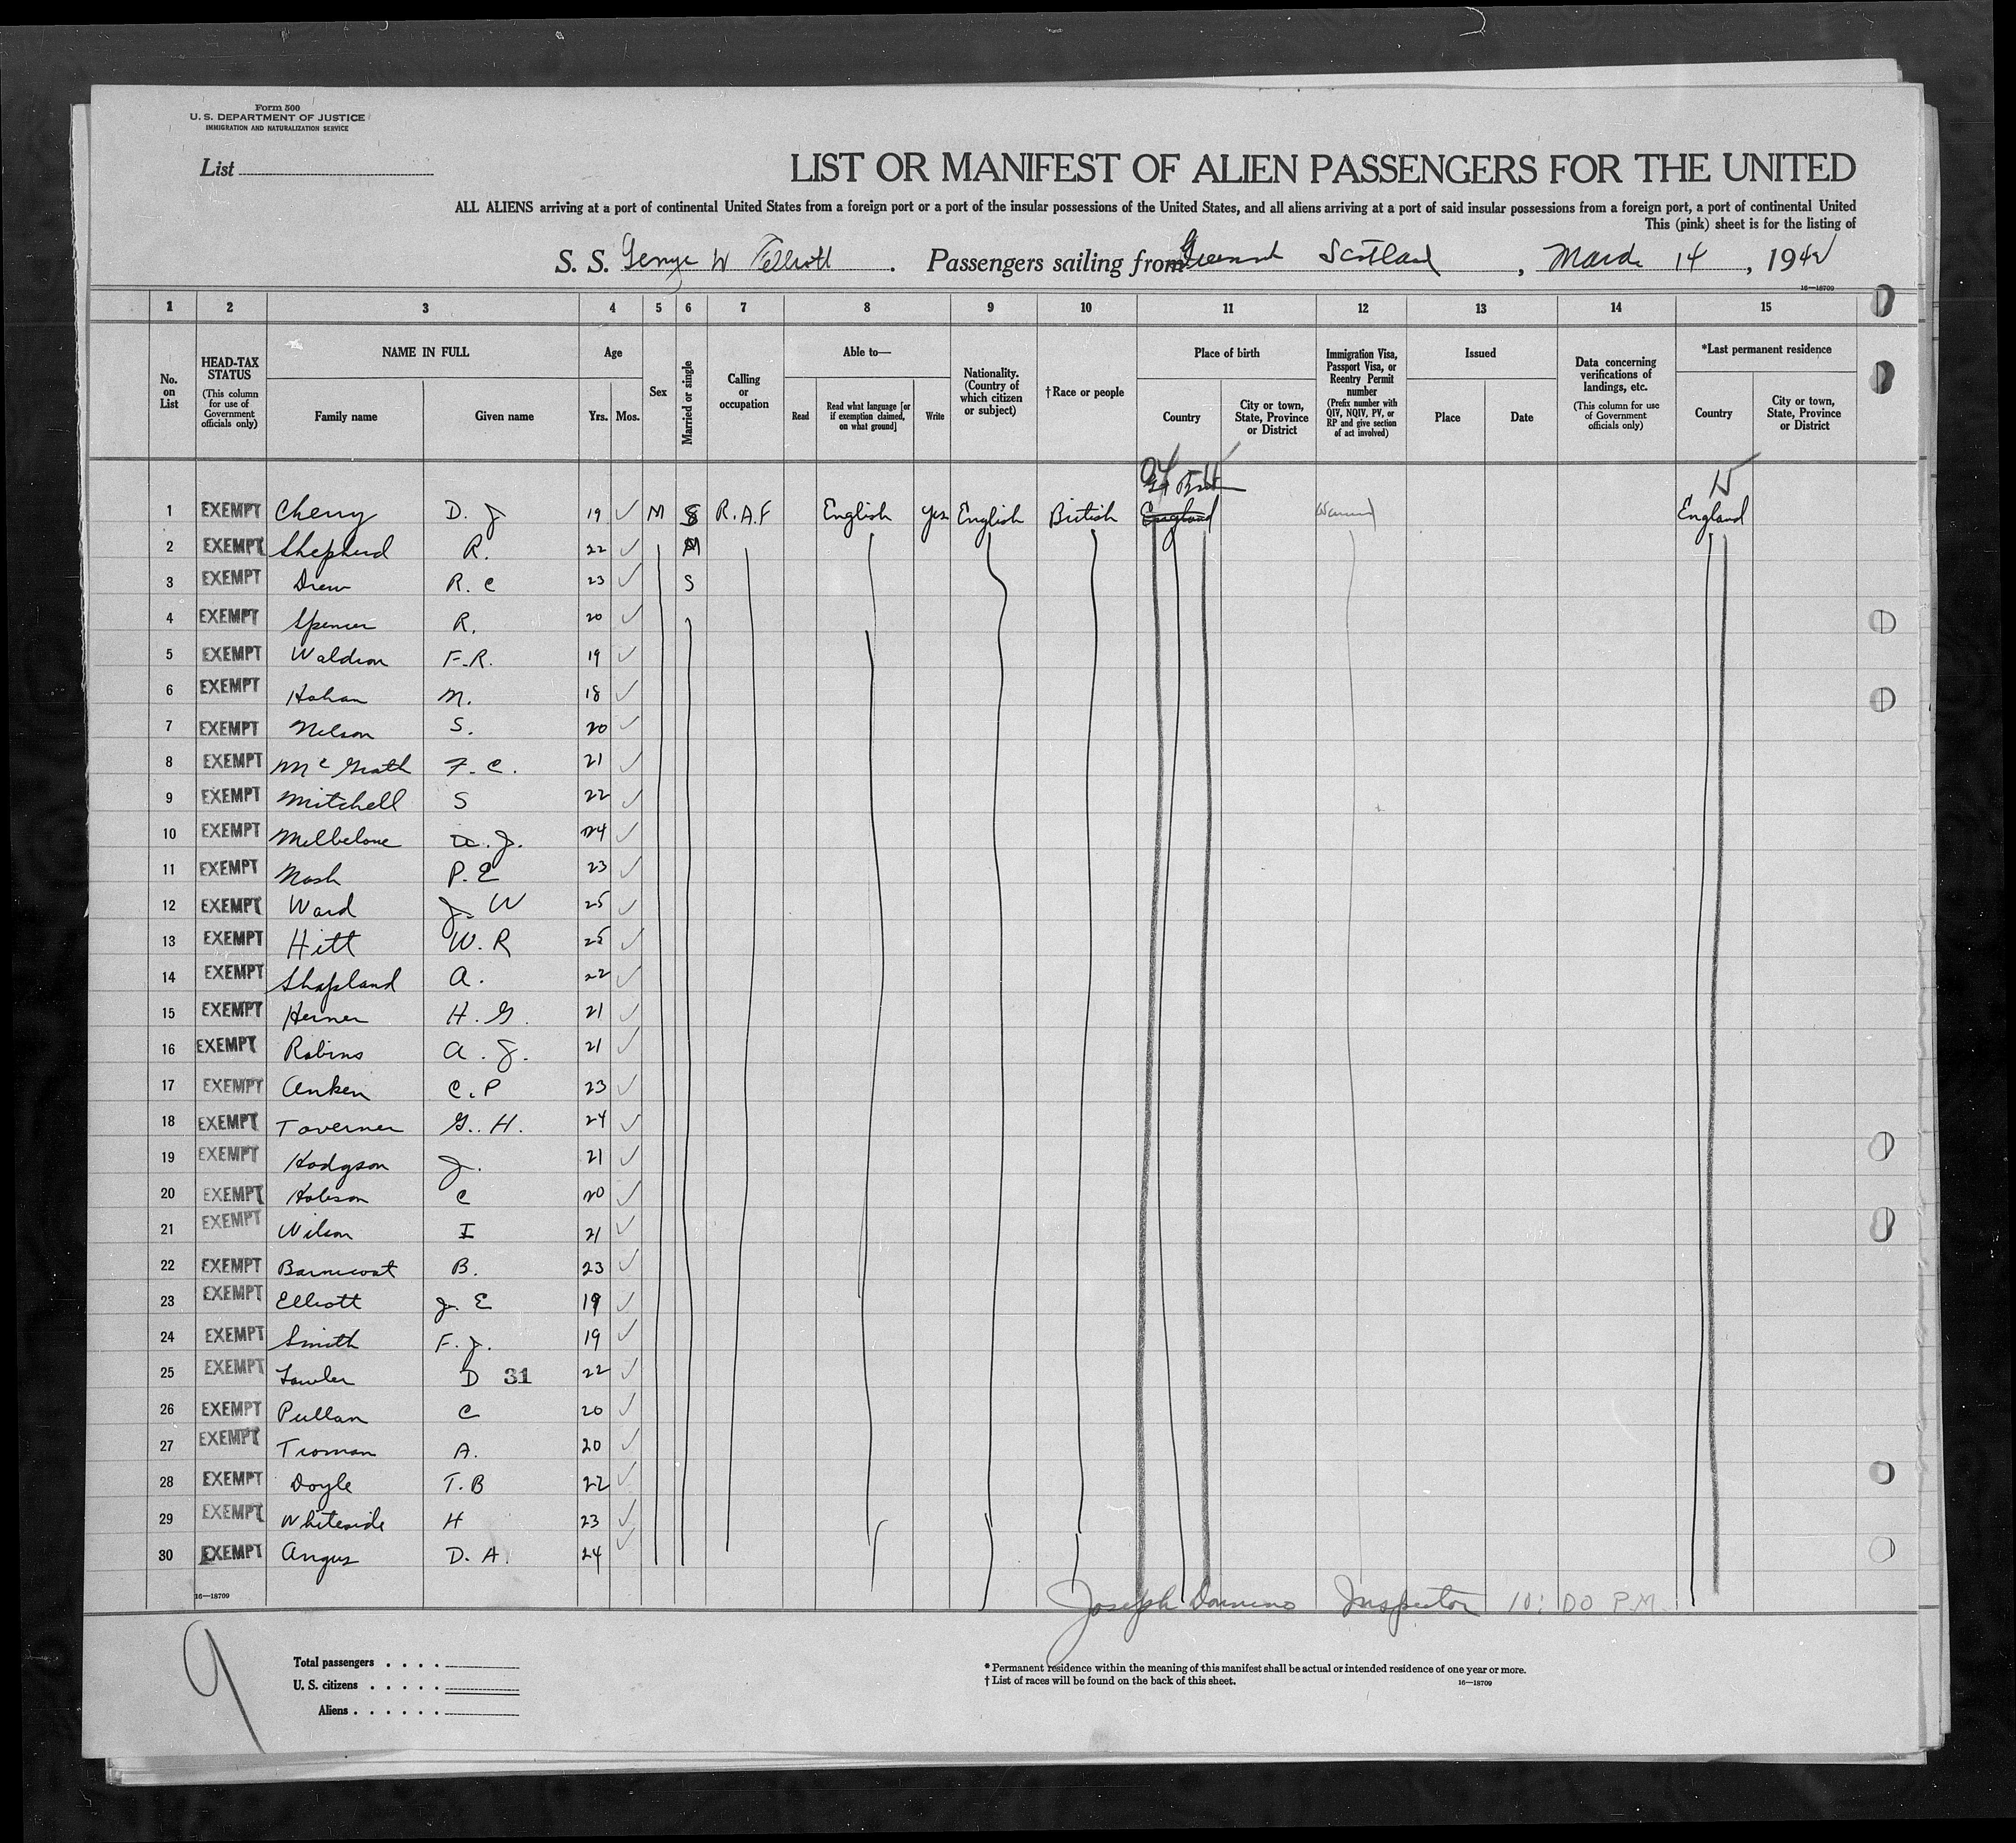 Form 500
U. S. DEPARTMENT OF JUSTICE
IMMIGRATION AND NATURALIZATION SERVICE
List
LIST OR MANIFEST OF ALIEN PASSENGERS FOR THE UNITED
ALL ALIENS arriving at a port of continental United States from a foreign port or a port of the insular possessions of the United States, and all aliens arriving at a port of said insular possessions from a foreign port, a port of continental United
This (pink) sheet is for the listing of
S. S. George W Elliott . Passengers sailing from Scotland , March 14 , 1942
16—18709
1 2 3 4 5 6 7 8 9 10 11 12 13 14 15
No. on List
HEAD-TAX STATUS
(This column for use of Government officials only)
NAME IN FULL
Family name Given name
Age
Yrs. Mos.
Sex
Married or single
Calling or occupation
Able to—
Read
Read what language [or if exemption claimed, on what ground]
Write
Nationality. (Country of which citizen or subject)
† Race or people
Place of birth
Country
City or town, State, Province or District
Immigration Visa, Passport Visa, or Reentry Permit number
(Prefix number with QIV, NQIV, PV, or RP and give section of act involved)
Issued
Place Date
Data concerning verifications of landings, etc.
(This column for use of Government officials only)
*Last permanent residence
Country
City or town, State, Province or District
1 EXEMPT Cherry D. J 19 ✓ M S R.A.F English Yes English British England England
2 EXEMPT Shepherd R. 22 ✓ M
3 EXEMPT Drew R. C 23 ✓ S
4 EXEMPT Spencer R. 20 ✓
5 EXEMPT Waldron F.R. 19 ✓
6 EXEMPT M. 18 ✓
7 EXEMPT Nelson S. 20 ✓
8 EXEMPT McGrath F. C. 21 ✓
9 EXEMPT Mitchell S 22 ✓
10 EXEMPT A. J. 24 ✓
11 EXEMPT Nash P. E 23 ✓
12 EXEMPT Ward J. W 25 ✓
13 EXEMPT Hitt W. R 25 ✓
14 EXEMPT Shapland A. 22 ✓
15 EXEMPT H. G. 21 ✓
16 EXEMPT Robins A. J. 21 ✓
17 EXEMPT Anken C. P 23 ✓
18 EXEMPT Taverner G. H. 24 ✓
19 EXEMPT Hodgson J. 21 ✓
20 EXEMPT Hobson C 20 ✓
21 EXEMPT Wilson I 21 ✓
22 EXEMPT Barnicoat B. 23 ✓
23 EXEMPT Elliott J. E 19 ✓
24 EXEMPT Smith F. J. 19 ✓
25 EXEMPT D 31 22 ✓
26 EXEMPT Pullan C 20 ✓
27 EXEMPT Troman A. 20 ✓
28 EXEMPT Doyle T. B 22 ✓
29 EXEMPT Whiteside H 23 ✓
30 EXEMPT Angus D. A. 24 ✓
16—18709
Joseph Domino Inspector 10:00 P.M.
9
Total passengers . . . .
U. S. citizens . . . . .
Aliens . . . . . .
* Permanent residence within the meaning of this manifest shall be actual or intended residence of one year or more.
† List of races will be found on the back of this sheet.
16—18709